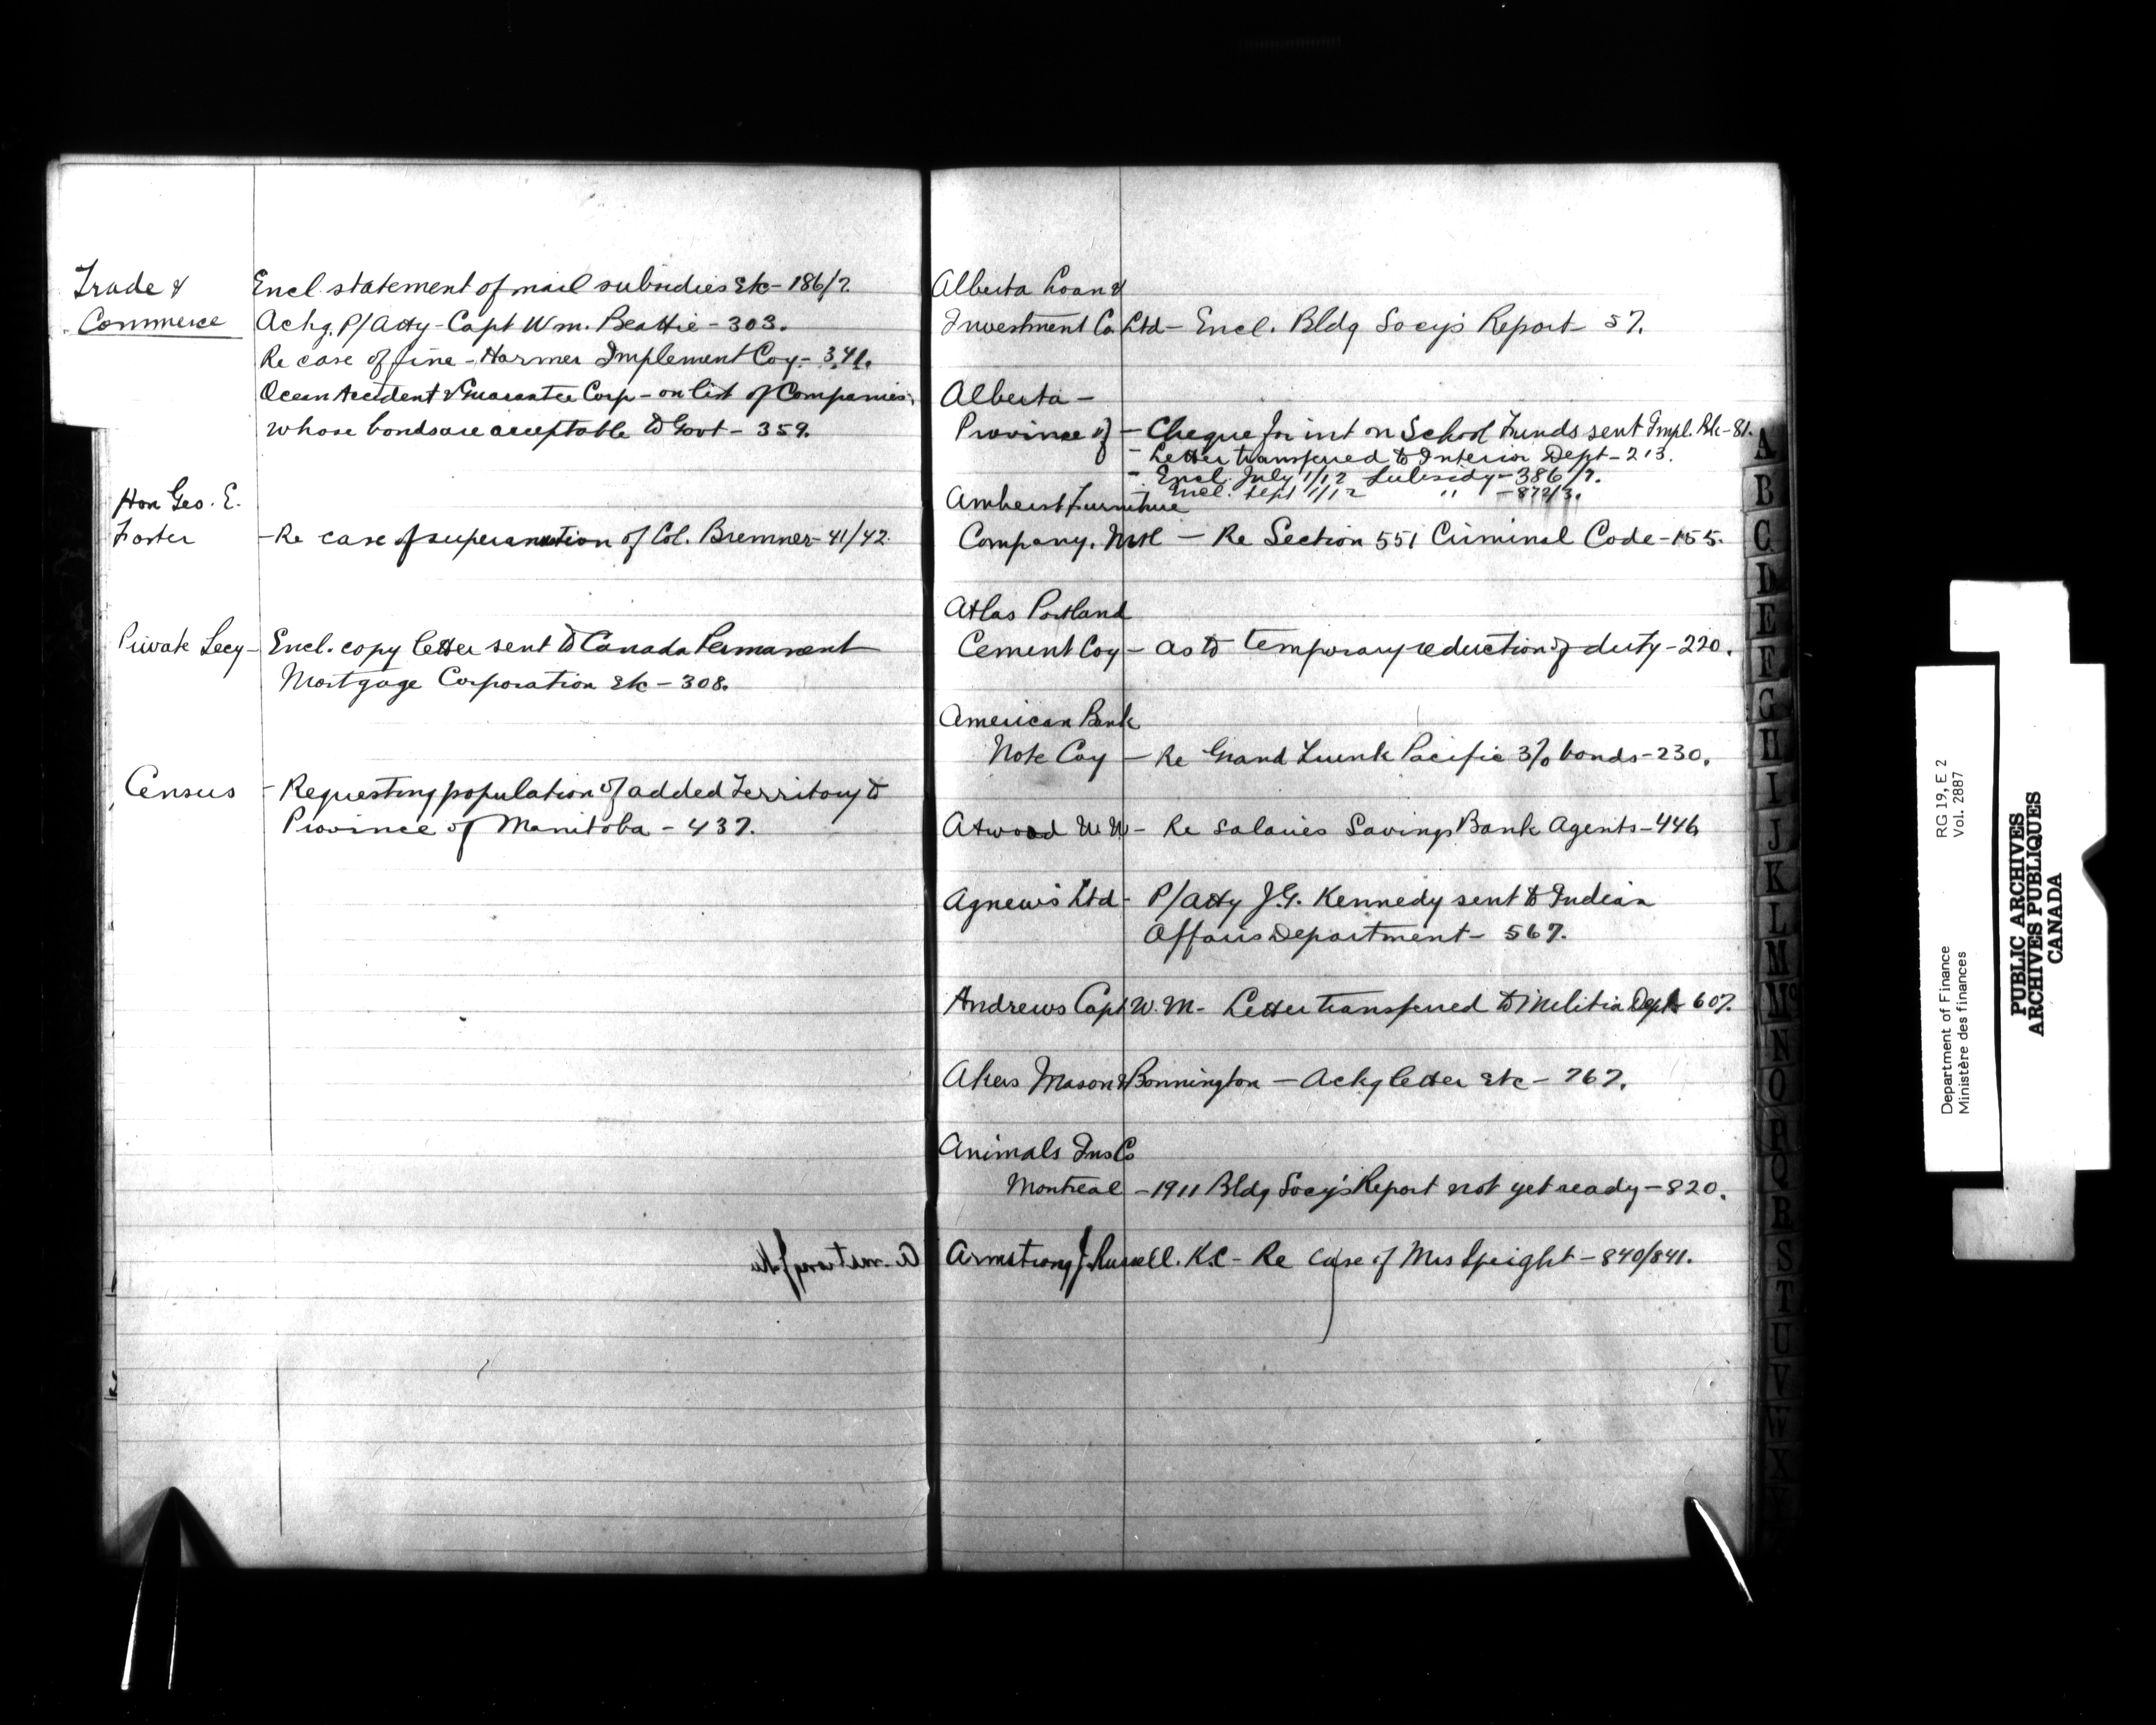 Trade &
Encl. statement of mail subsidies Etc - 186/7.
Commerce
Ackg. P/Atty - Capt Wm. Beattie - 303.
Re case of fine - Harmer Implement Coy - 341.
Ocean Accident & Guarantee Corp - on list of Companies,
whose bonds are acceptable to Govt - 359.
Hon Geo. E.
Foster
- Re case of superanution of Col. Bremner - 41/42.
Private Secy - Encl. copy letter sent to Canada Permanent
Mortgage Corporation Etc - 308.
Census - Requesting population of added Territory to
Province of Manitoba - 437.
Alberta Loan &
Investment Co Ltd - Encl. Bldg Socy's Report - 57.
Alberta -
Province of - Cheque for int on School Funds sent Impl. Bk - 81.
- Letter transferred to Interior Dept - 213.
- Encl. July 1/12 Subsidy - 386/7.
- Encl. Sept 1/12 " - 872/3.
Amherst Furniture
Company, Mtl - Re Section 551 Criminal Code - 155.
Atlas Portland
Cement Coy - as to temporary reduction of duty - 220.
American Bank
Note Coy - Re Grand Trunk Pacific 3% bonds - 230.
Atwood W. W - Re salaries Savings Bank Agents - 446
Agnew's Ltd - P/Atty J.G. Kennedy sent to Indian
Affairs Department - 567.
Andrews Capt W. M. - Letter transferred to Militia Dept - 607.
Akers Mason & Bonnington - Ackg letter etc - 767.
Animals Ins Co
Montreal - 1911 Bldg Socy's Report not yet ready - 820.
Armstrong J. Russell. K.C - Re case of Mrs Speight - 840/841.
A
B
C
D
E
F
G
H
I
J
K
L
M
Mc
N
O
P
Q
R
S
T
U
V
W
X
Y
Department of Finance RG 19, E 2
Ministère des finances Vol. 2887
PUBLIC ARCHIVES
ARCHIVES PUBLIQUES
CANADA